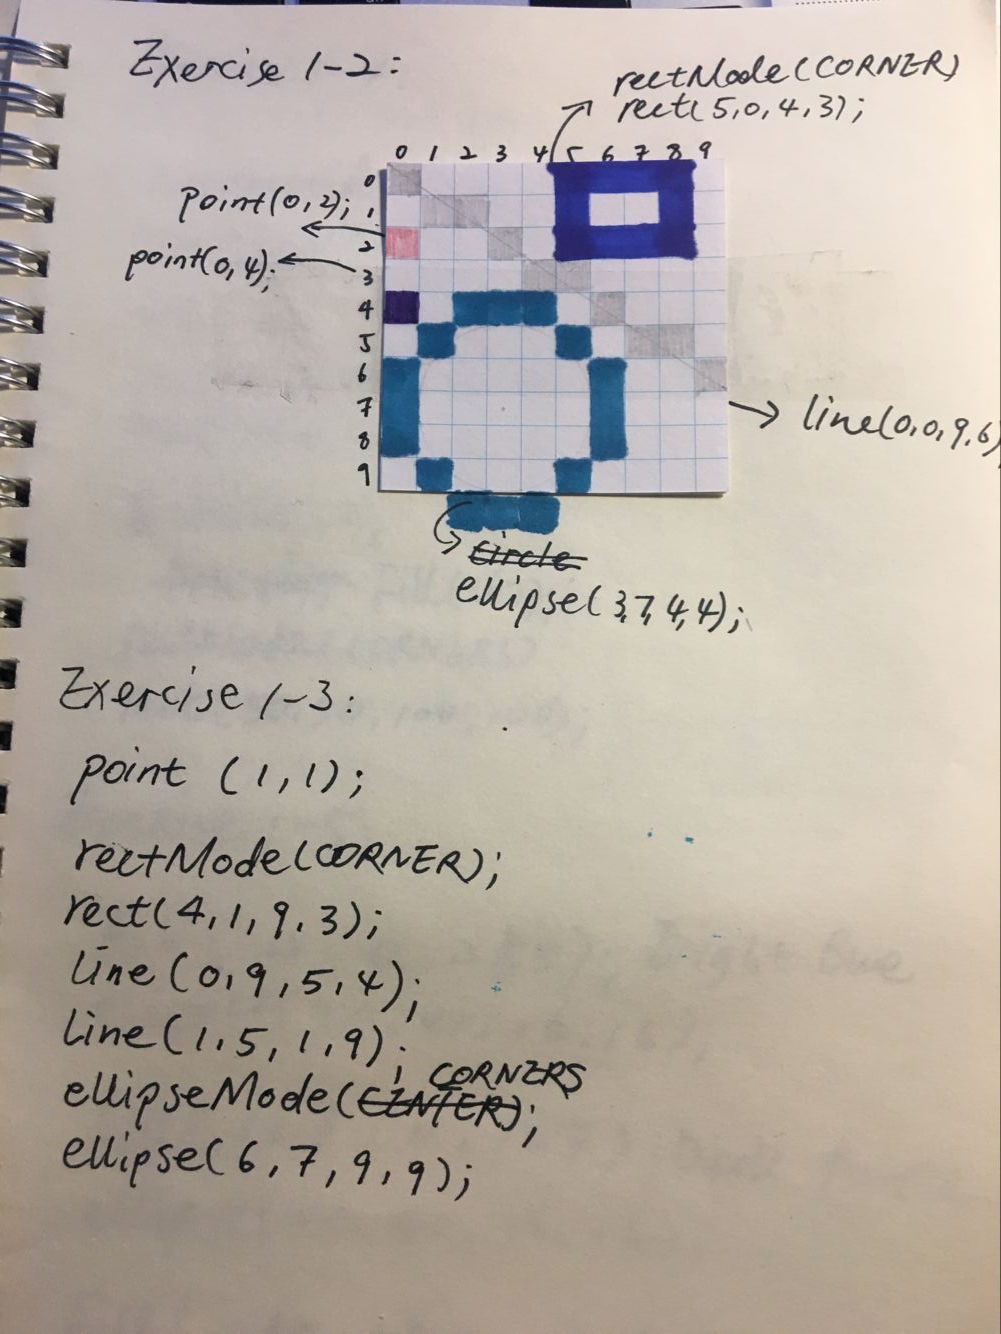 Exercise 1-2:
rectMode(CORNER)
rect(5,0,4,3);
0 1 2 3 4 5 6 7 8 9
0
point(0,2);
1
2
point(0,4);
3
4
5
6
7
line(0,0,9,6)
8
9
circle
ellipse(3,7,4,4);
Exercise 1-3:
point (1,1);
rectMode(CORNER);
rect(4,1,9,3);
line(0,9,5,4);
line(1,5,1,9);
CORNERS
ellipseMode(CENTER);
ellipse(6,7,9,9);